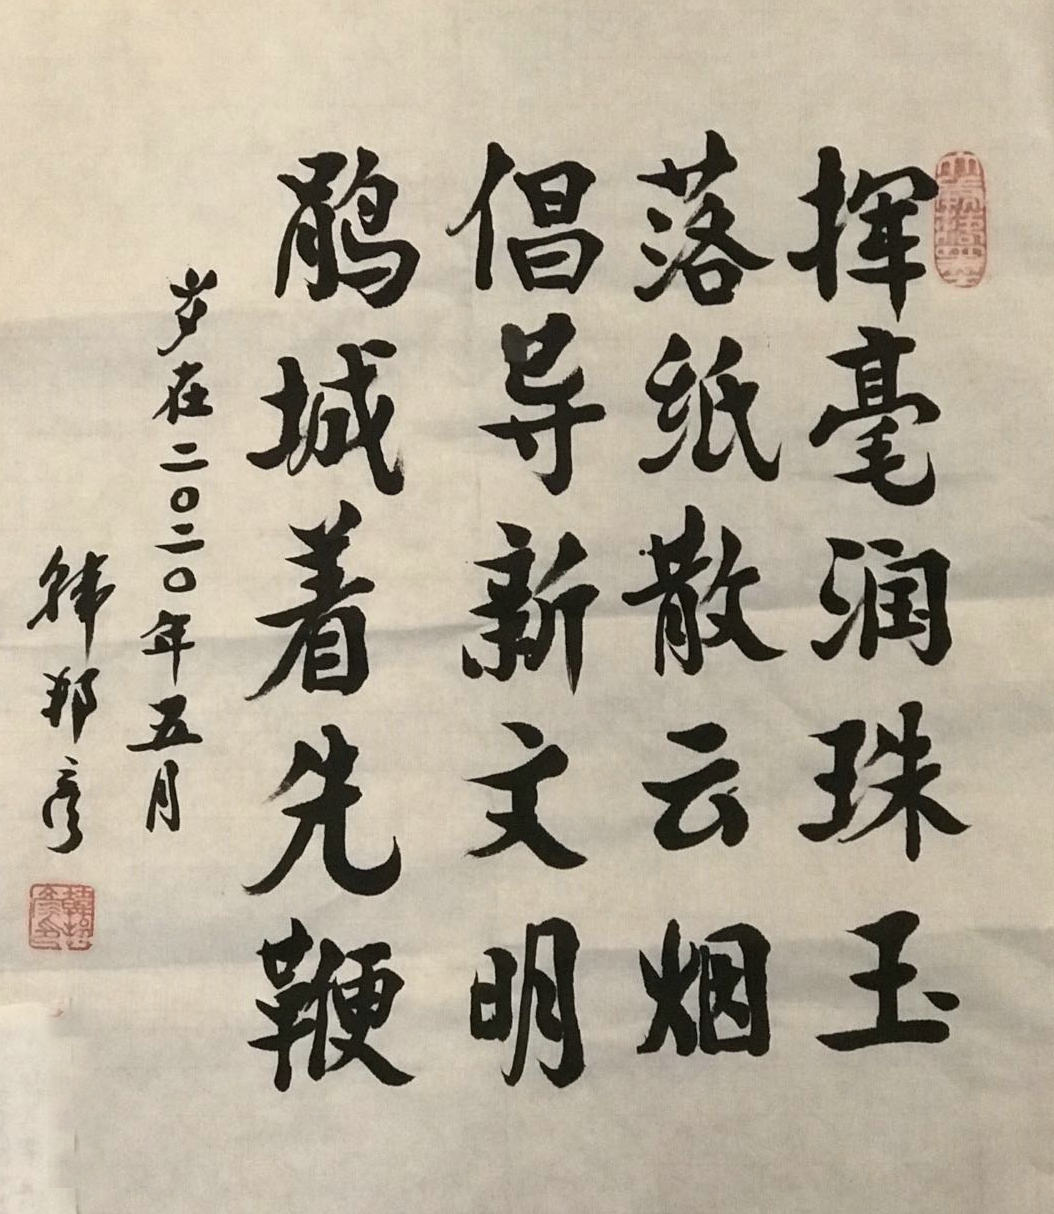 挥毫润珠玉
落纸散云烟
倡导新文明
鹃城着先鞭
岁在二〇二〇年五月
韩邦彦